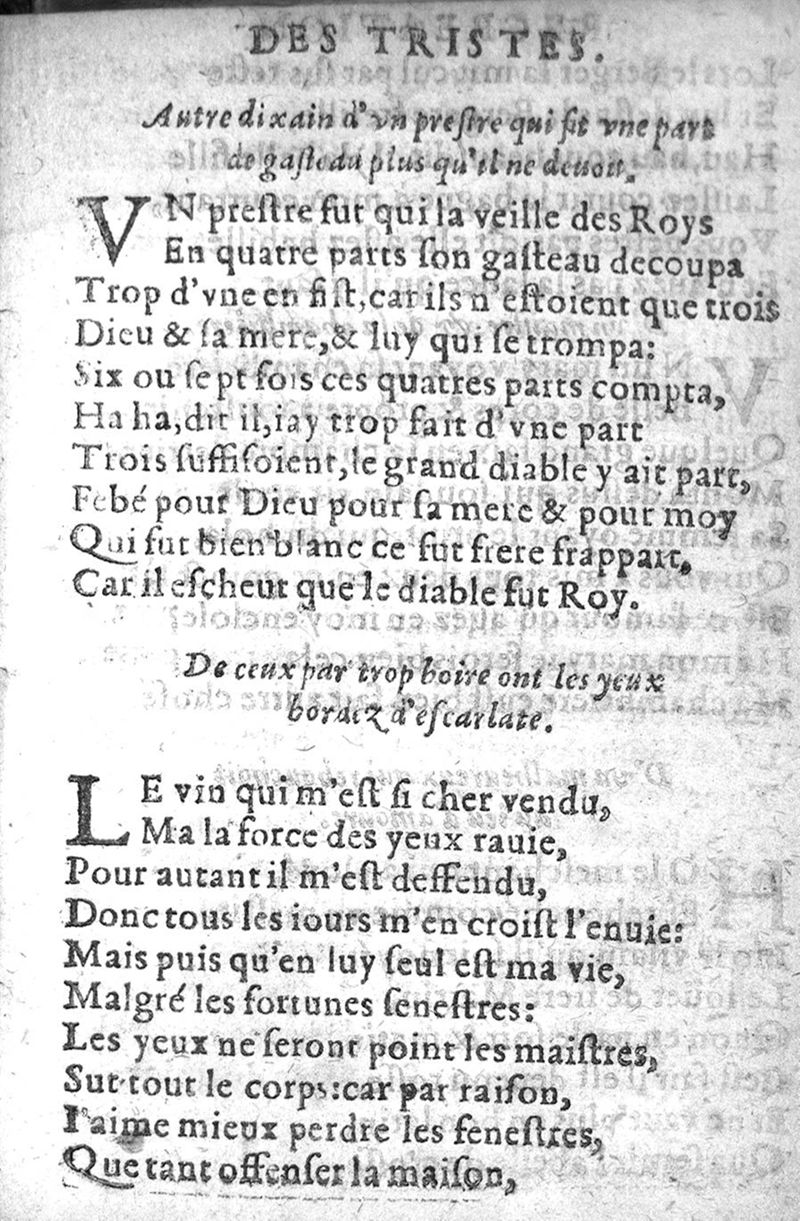 DES TRISTES.
Autre dixain d'vn preſtre qui fit vne part
de gaſteau plus qu'il ne deuoit.
VN preſtre fut qui la veille des Roys
En quatre parts ſon gaſteau decoupa
Trop d'vne en fiſt, car ils n'eſtoient que trois
Dieu & ſa mere, & luy qui ſe trompa:
Six ou ſept fois ces quatres parts compta,
Ha ha, dit il, iay trop fait d'vne part
Trois ſuffiſoient, le grand diable y ait part,
Febé pour Dieu pour ſa mere & pour moy
Qui fut bien blanc ce fut frere frappart,
Car il eſcheut que le diable fut Roy.
De ceux par trop boire ont les yeux
bordez d'eſcarlate.
LE vin qui m'eſt ſi cher vendu,
Ma la force des yeux rauie,
Pour autant il m'eſt deffendu,
Donc tous les iours m'en croiſt l'enuie:
Mais puis qu'en luy ſeul eſt ma vie,
Malgré les fortunes ſeneſtres:
Les yeux ne ſeront point les maiſtres,
Sur tout le corps: car par raiſon,
I'aime mieux perdre les feneſtres,
Que tant offenſer la maiſon,